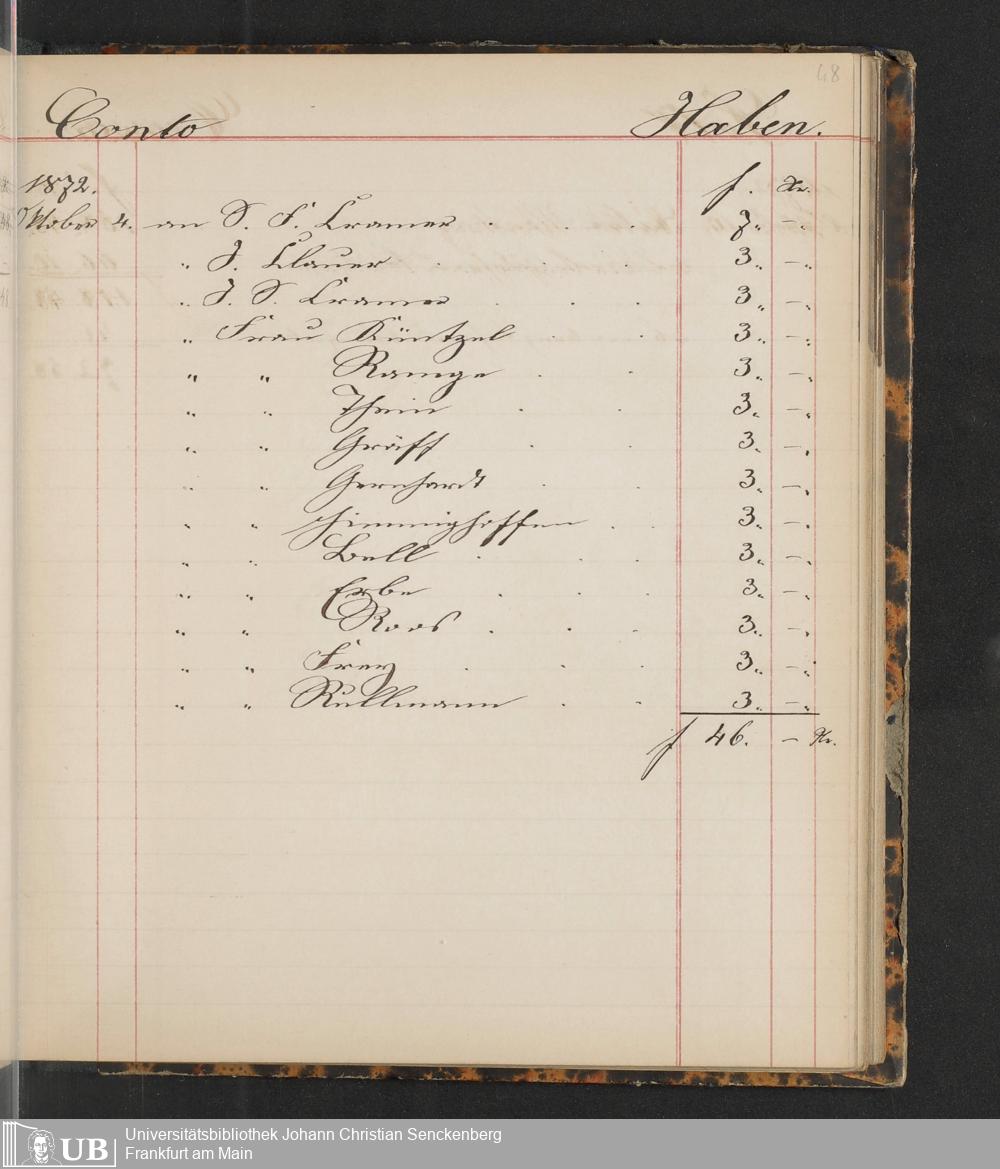 68
Conto Haben.
1872. f. Kr.
October 4. an S. F. Cramer . . . 7. -.
" J. Clauer . . . 3. -.
" J. S. Cramer . . . 3. -.
" Frau Küntzel . . 3. -.
" " Ramge . . 3. -.
" " Thein . . 3. -.
" " Gräff . . 3. -.
" " Gernhardt . . 3. -.
" " Himmighoffen . . 3. -.
" " Bell . . . 3. -.
" " Erbe . . . 3. -.
" " Roos . . . 3. -.
" " Frey . . . 3. -.
" " Rullmann . . 3. -.
f 46. - Kr.
UB
Universitätsbibliothek Johann Christian Senckenberg
Frankfurt am Main